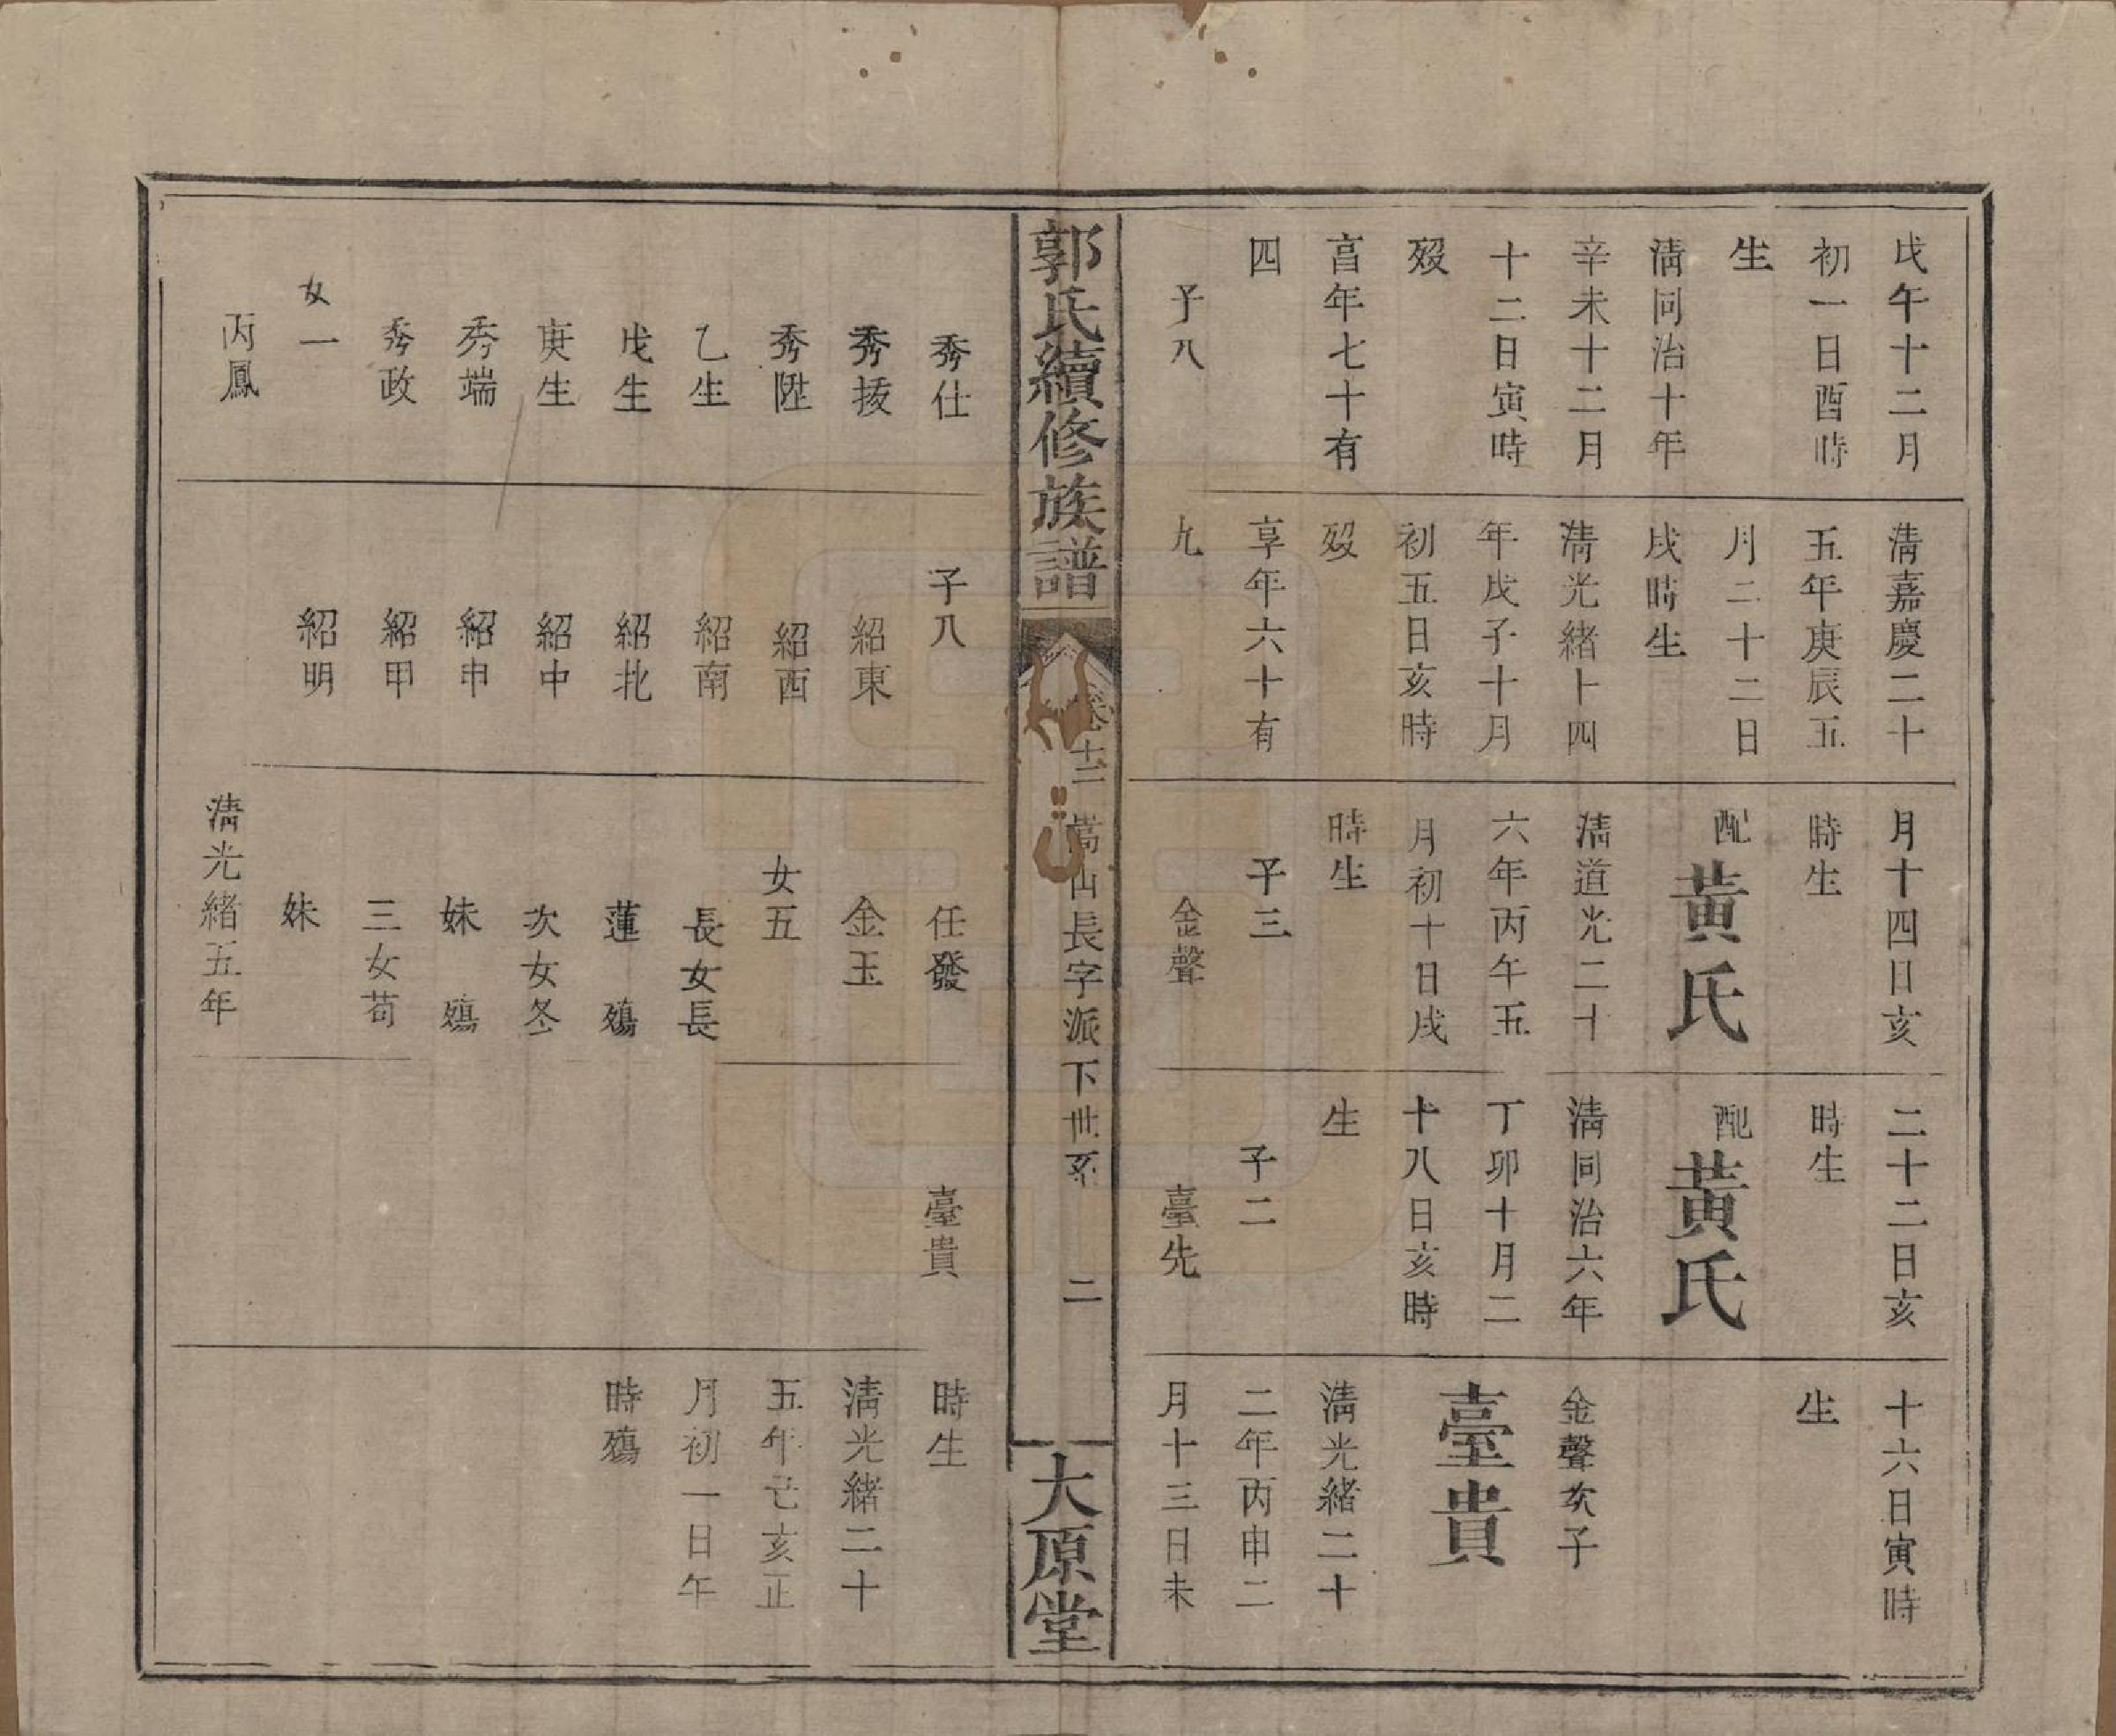 戊午十二月
初一日酉時
生
淸同治十年
辛未十二月
十二日寅時
歿
享年七十有
四
子八
淸嘉慶二十
五年庚辰五
月二十二日
戌時生
淸光緒十四
年戊子十月
初五日亥時
歿
享年六十有
九
月十四日亥
時生
配黃氏
淸道光二十
六年丙午五
月初十日戌
時生
子三
金聲
二十二日亥
時生
配黃氏
淸同治六年
丁卯十月二
十八日亥時
生
子二
臺先
十六日寅時
生
金聲次子
臺貴
淸光緒二十
二年丙申二
月十三日未
郭氏續修族譜
卷十二
山長字派下世系
二
大原堂
秀仕
秀拔
秀陞
乙生
戊生
庚生
秀端
秀政
女一
丙鳳
子八
紹東
紹西
紹南
紹北
紹中
紹申
紹甲
紹明
任發
金玉
女五
長女長
蓮 殤
次女冬
妹 殤
三女苟
妹
淸光緒五年
臺貴
時生
淸光緒二十
五年己亥正
月初一日午
時殤